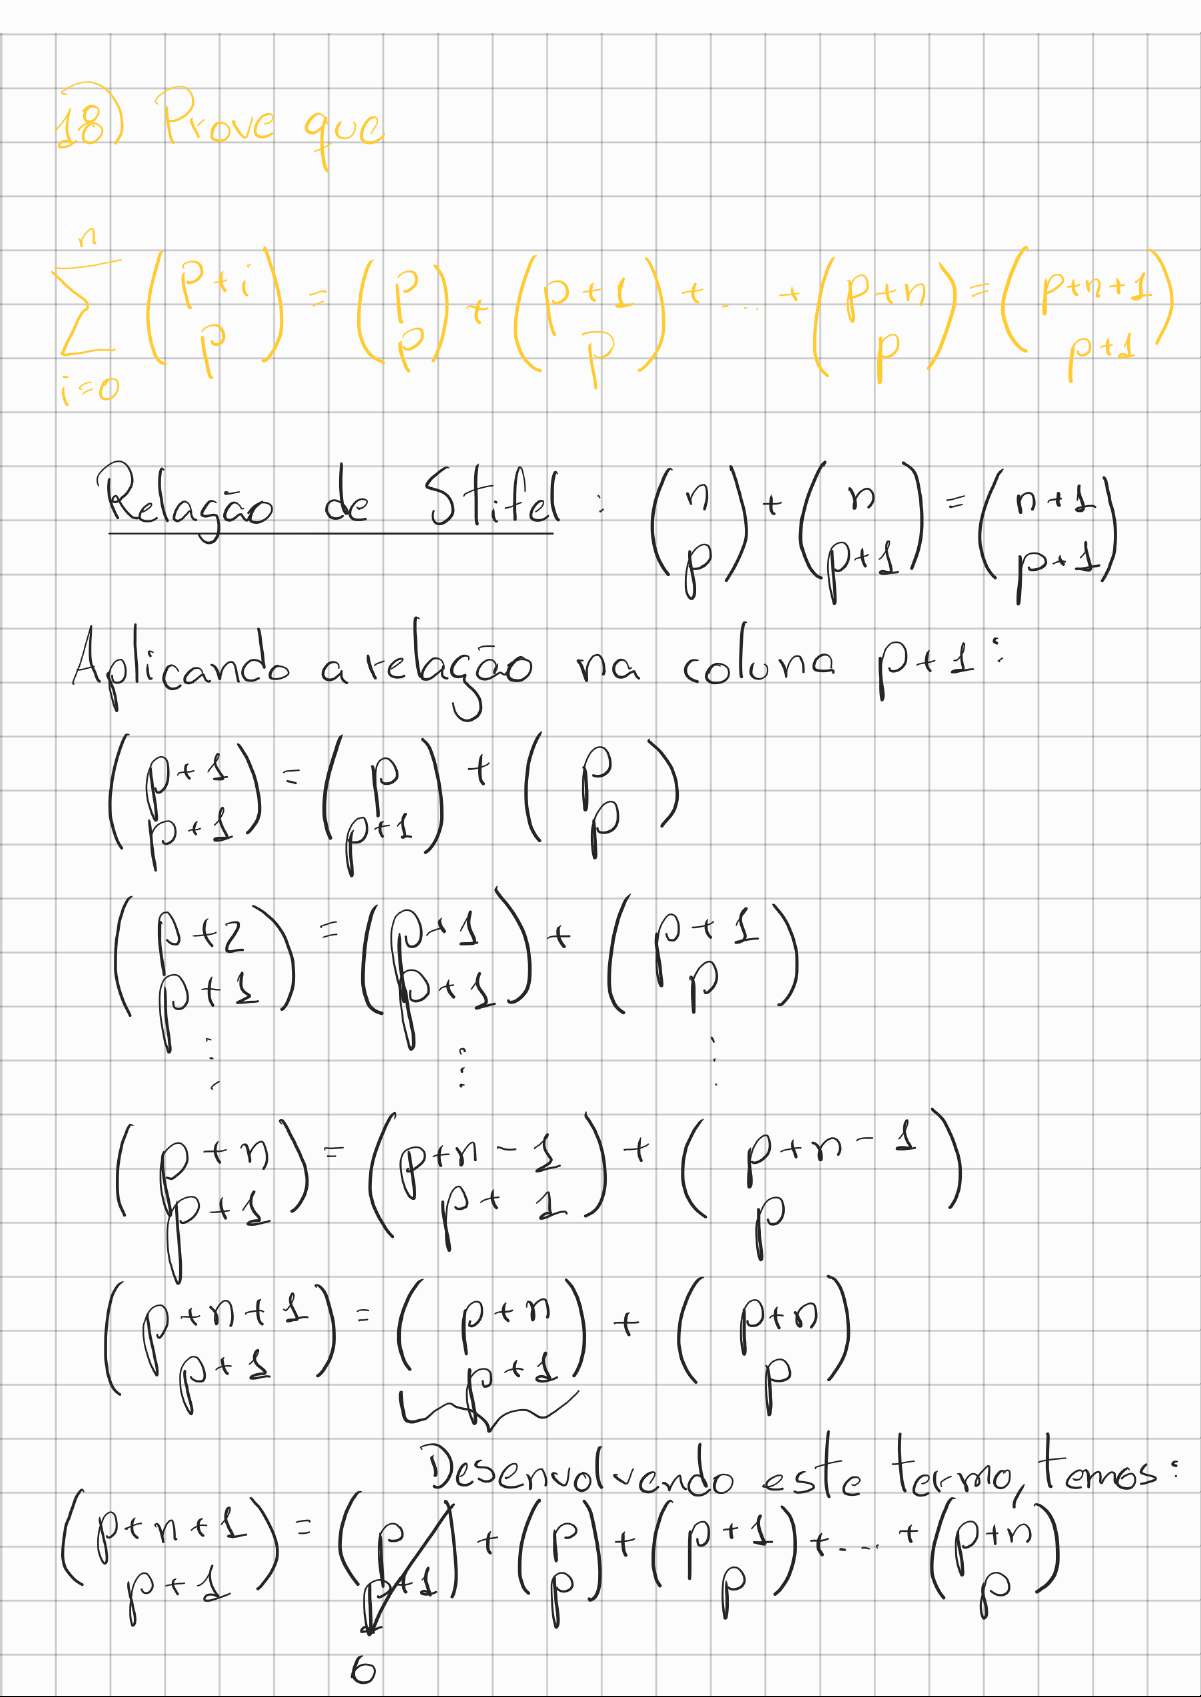 18) Prove que
\sum_{i=0}^{n} \binom{p+i}{p} = \binom{p}{p} + \binom{p+1}{p} + ... + \binom{p+n}{p} = \binom{p+n+1}{p+1}
Relação de Stifel : \binom{n}{p} + \binom{n}{p+1} = \binom{n+1}{p+1}
Aplicando a relação na coluna p+1:
\binom{p+1}{p+1} = \binom{p}{p+1} + \binom{p}{p}
\binom{p+2}{p+1} = \binom{p+1}{p+1} + \binom{p+1}{p}
⋮ ⋮ ⋮
\binom{p+n}{p+1} = \binom{p+n-1}{p+1} + \binom{p+n-1}{p}
\binom{p+n+1}{p+1} = \binom{p+n}{p+1} + \binom{p+n}{p}
Desenvolvendo este termo, temos:
\binom{p+n+1}{p+1} = \binom{p}{p+1} + \binom{p}{p} + \binom{p+1}{p} + ... + \binom{p+n}{p}
0